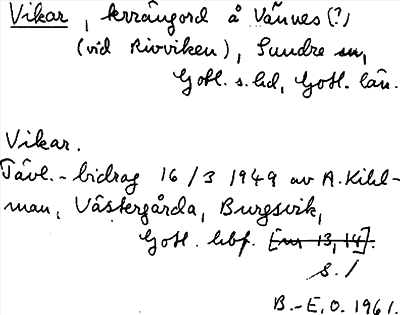 Vikar, terrängord å Vännes(?)
(vid Rivviken), Sundre sn,
Gotl. s. hd, Gotl. län.
Vikar.
Tävl.-bidrag 16/3 1949 av A. Kihl-
man, Västergårda, Burgsvik,
Gotl. hbf. [nr 13, 14].
S. 1
B.-E.O. 1961.